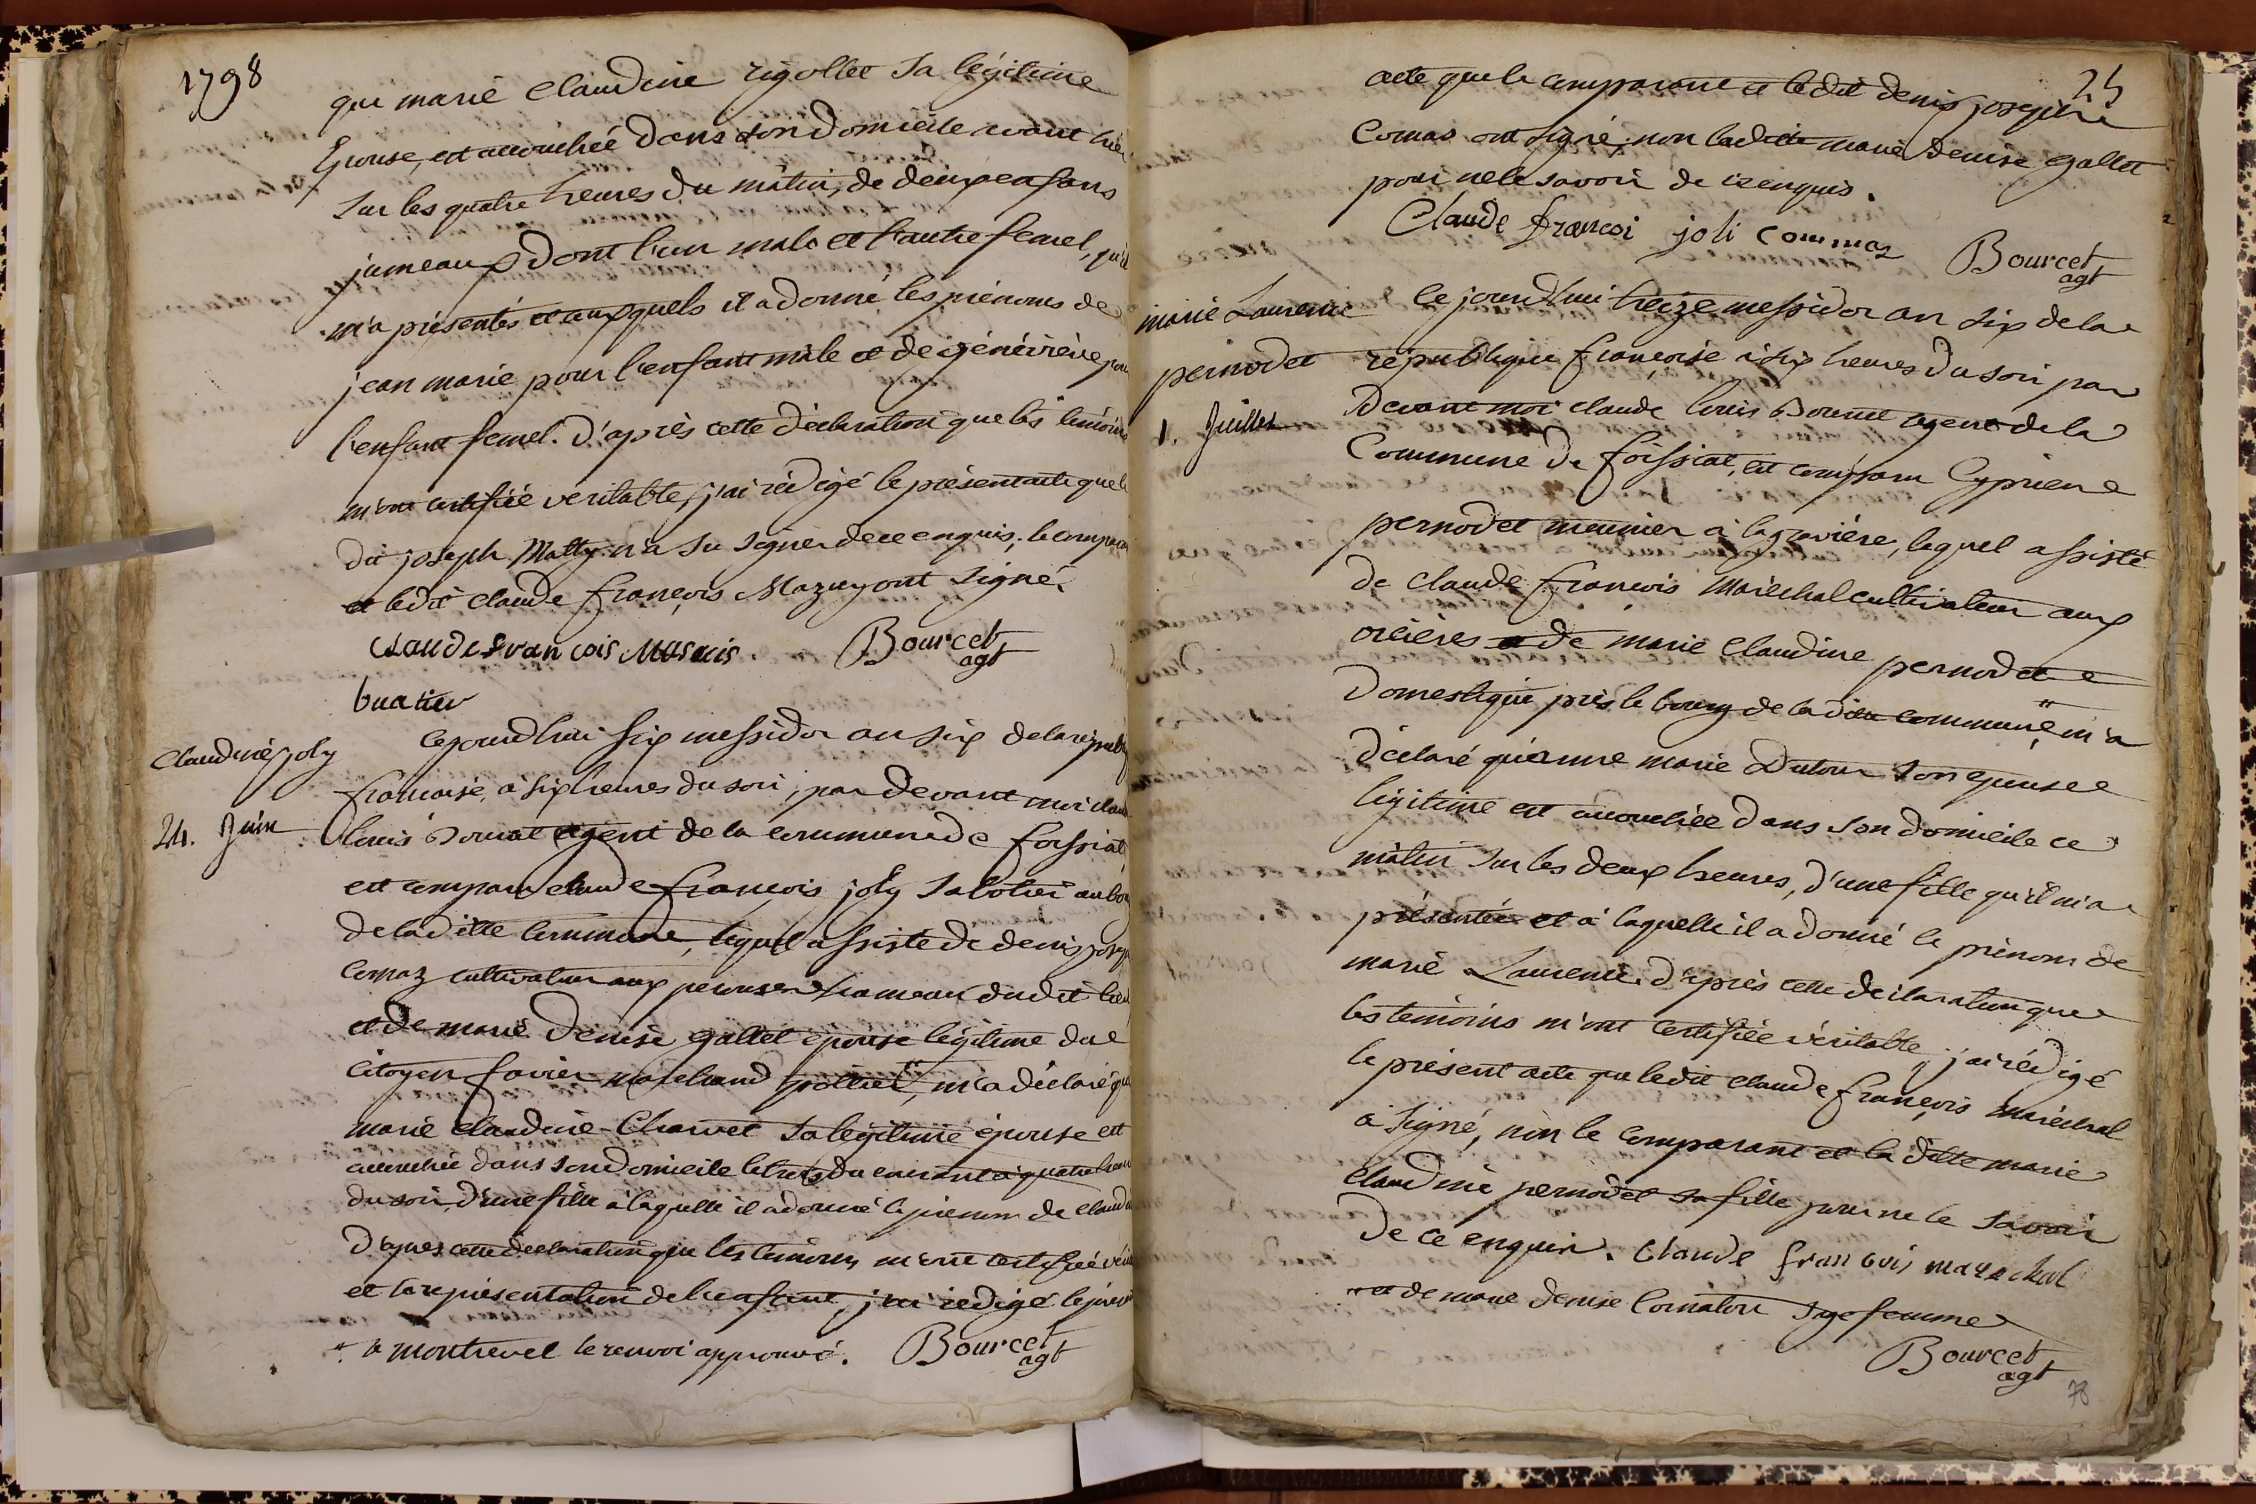 1798
que marie Claudine rigollet sa légitime
Epouse, est accouchée dans son domicile avant hier
sur les quatre heures du matin, de deux enfans
jumeaux dont l'un male et l'autre femel, qu'il
m'a présentés et auxquels il a donné les prénoms de
jean marie pour l'enfant mâle et de généviève pour
l'enfant femel. D'après cette déclaration que les témoins
m'ont certifiée veritable, j'ai rédigé le présent acte que le
dit joseph Matty n'a su signer de ce enquis; le comparant
et ledit claude françois Mazuy ont signé.
claude francois Masuis Bourcet
agt
buatier
Claudine joly
24. Juin
Cejourdhui six messidor an six de la républ
francaise, à six heures du soir, par devant moi claude
louis Bourcet agent de la commune de foissiat
est comparu claude françois joly sabotier au bourg
de laditte commune, lequel assisté de denis joseph
comaz cultivateur aux perouses hameau dudit lieu
et de marie denise gallet epouse légitime du
citoyen favier marchand pottier", m'a déclaré que
marie claudine Charvet sa légitime épouse est
accouchée dans son domicile le trois du courant à quatre heures
du soir, d'une fille à laquelle il a donné le prénom de claudine
D'après cette déclaration que les témoins m'ont certifiée
et la représentation de l'enfant, j'ai redigé le présent
" à montrevel le renvoi approuvé. Bourcet
agt
25
acte que le comparant et ledit denis joseph
Comas ont signé, non laditte marie denise gallet
pour ne le savoir de ce enquis.
Claude françoi joli commaz Bourcet
agt
marie Laurence
pernodet
1. Juillet
Ce jourd'hui treize messidor an six de la
république françoise à six heures du soir par
Devant moi claude louis Bourcet agent de la
Commune de foissiat, est comparu Cyprien
pernodet meunier à la gravière, lequel assisté
de claude françois Maréchal cultivateur aux
orcières et de marie claudine pernodet
Domestique près le bourg de la dite commune," m'a
déclaré qu'anne marie Dutour son epouse
légitime est accouchée dans son domicile ce
matin sur les deux heures, d'une fille qu'il m'a
présentée et à laquelle il a donné le prénom de
marie Laurence. D'après cette déclaration que
les témoins m'ont certifiée véritable, j'ai rédigé
le présent acte que ledit claude françois maréchal
a signé, non le comparant et la ditte marie
claudine pernodet sa fille pour ne le savoir
De ce enquis. Claude francois marechal
" et de marie denise Cornaton sage femme
Bourcet
agt
78